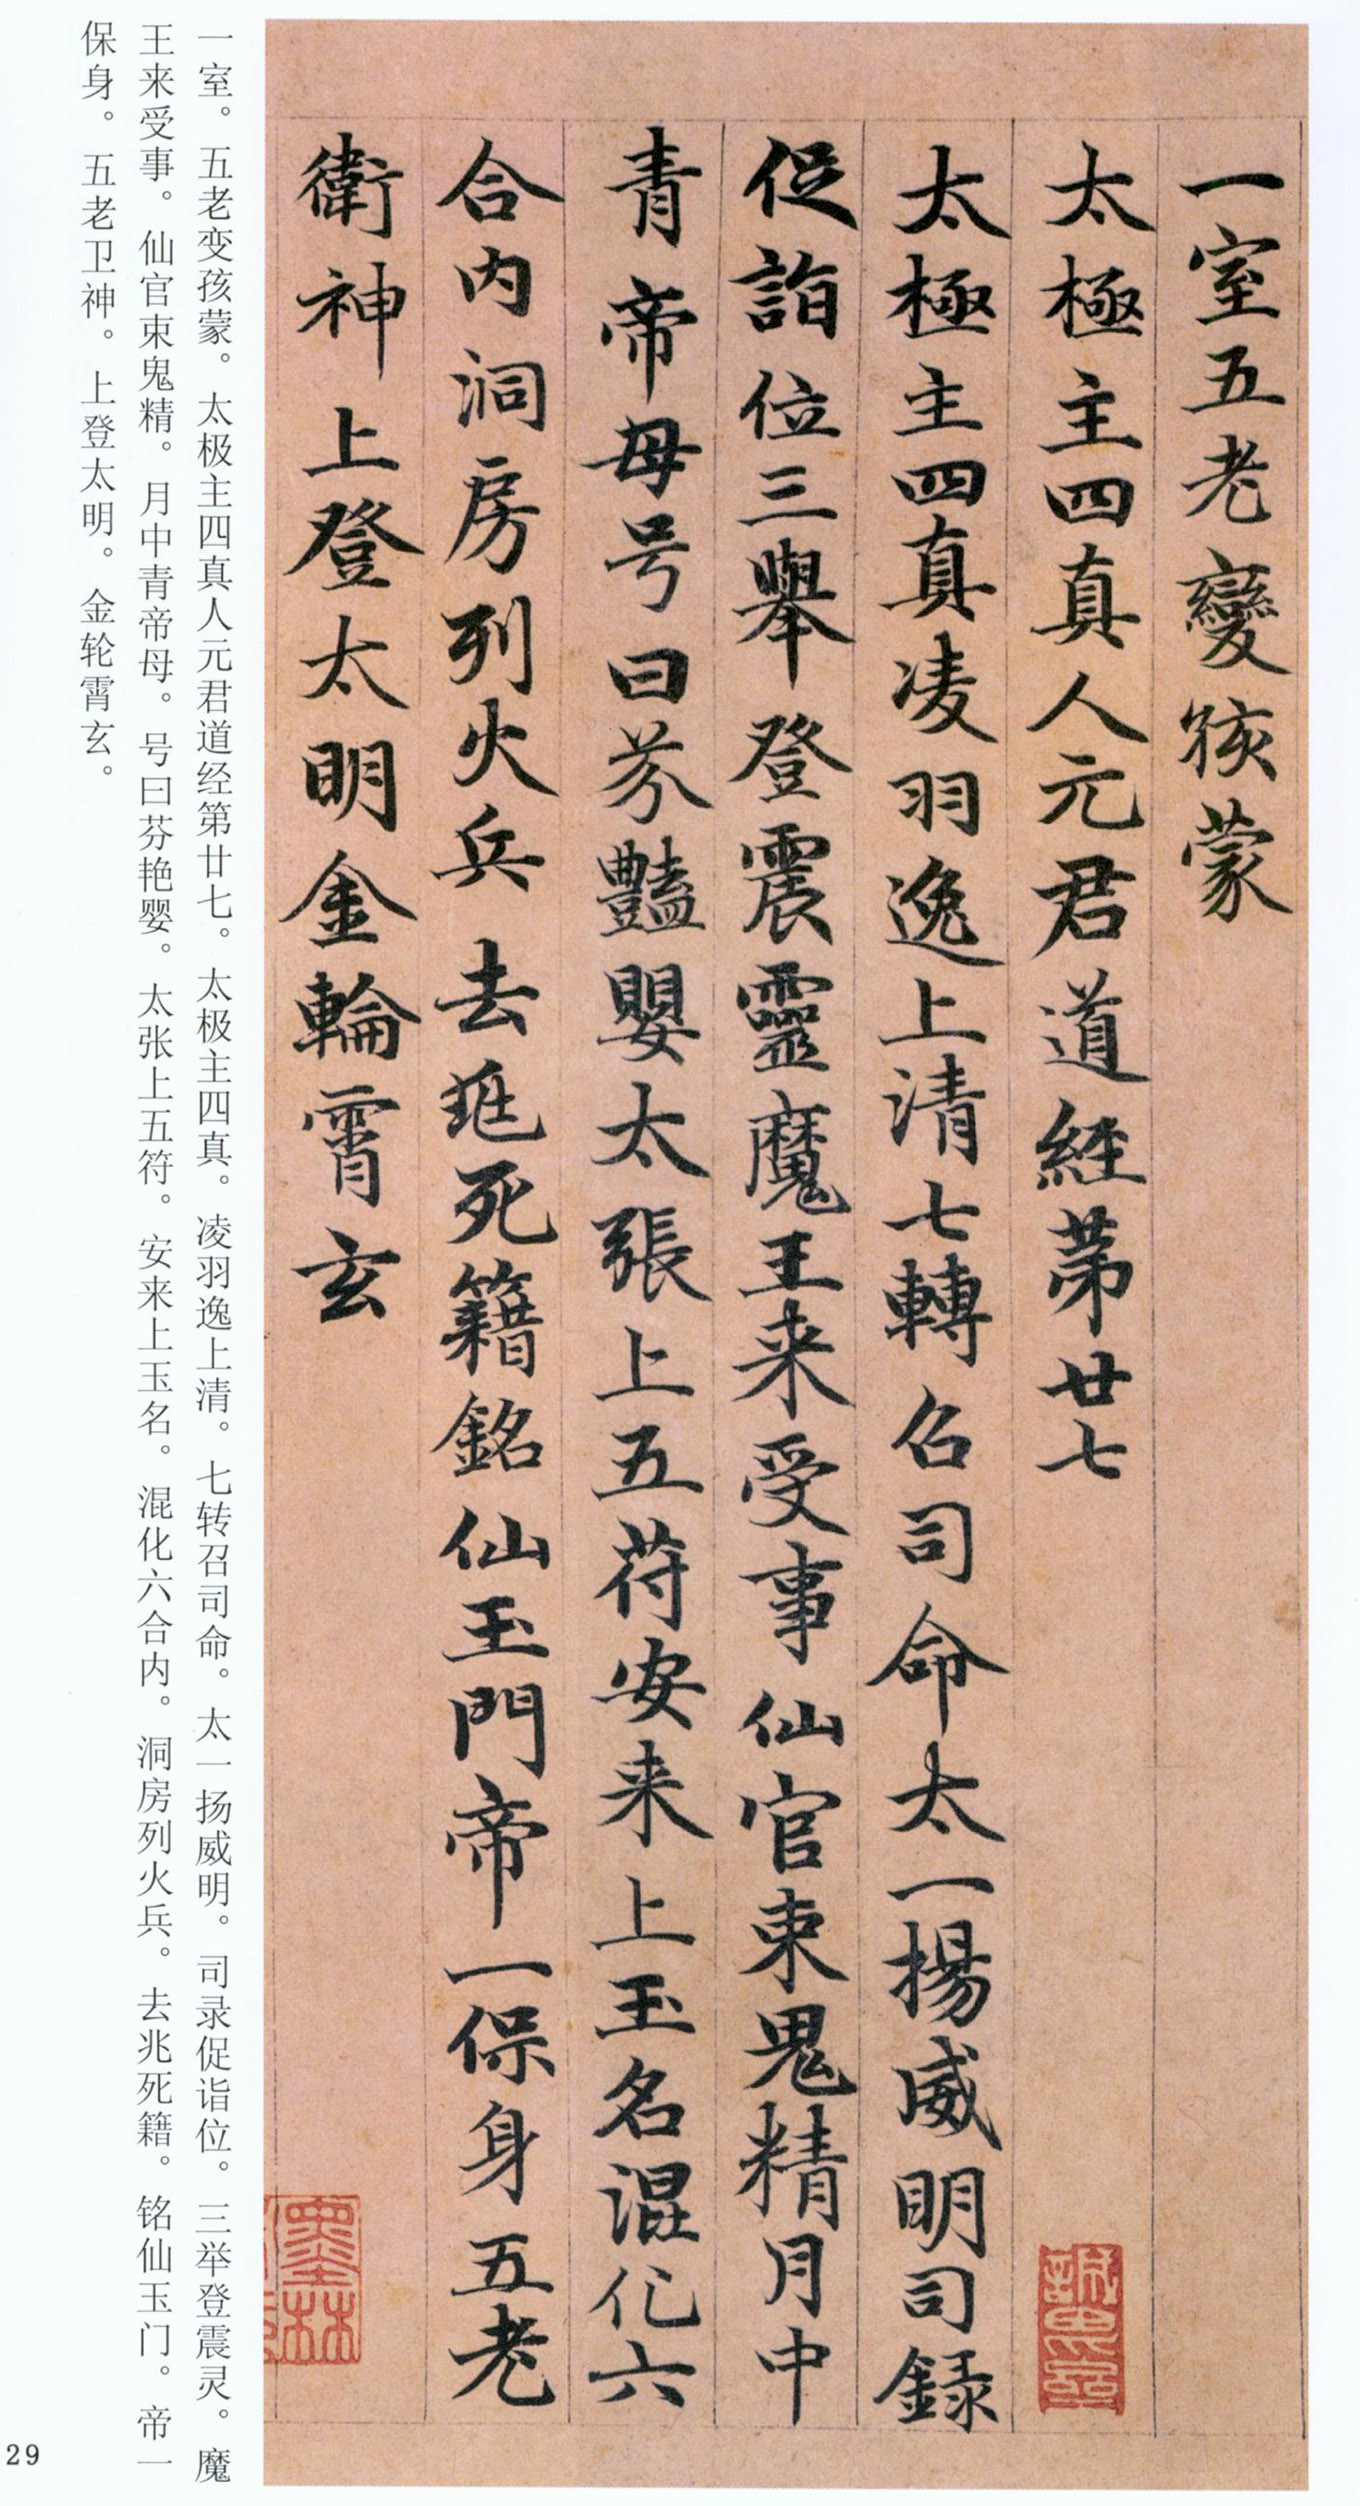 一室五老變孩蒙
太極主四真人元君道經第廿七
太極主四真凌羽逸上清七轉召司命太一揚威明司錄
促詣位三舉登震靈魔王来受事仙官束鬼精月中
青帝母号曰芬豔嬰太張上五符安来上玉名混化六
合内洞房列火兵去死籍銘仙玉門帝一保身五老
衛神上登太明金輪霄玄
一室。五老变孩蒙。太极主四真人元君道经第廿七。太极主四真。凌羽逸上清。七转召司命。太一扬威明。司录促诣位。三举登震灵。魔
王来受事。仙官束鬼精。月中青帝母。号曰芬艳婴。太张上五符。安来上玉名。混化六合内。洞房列火兵。去兆死籍。铭仙玉门。帝一
保身。五老卫神。上登太明。金轮霄玄。
29